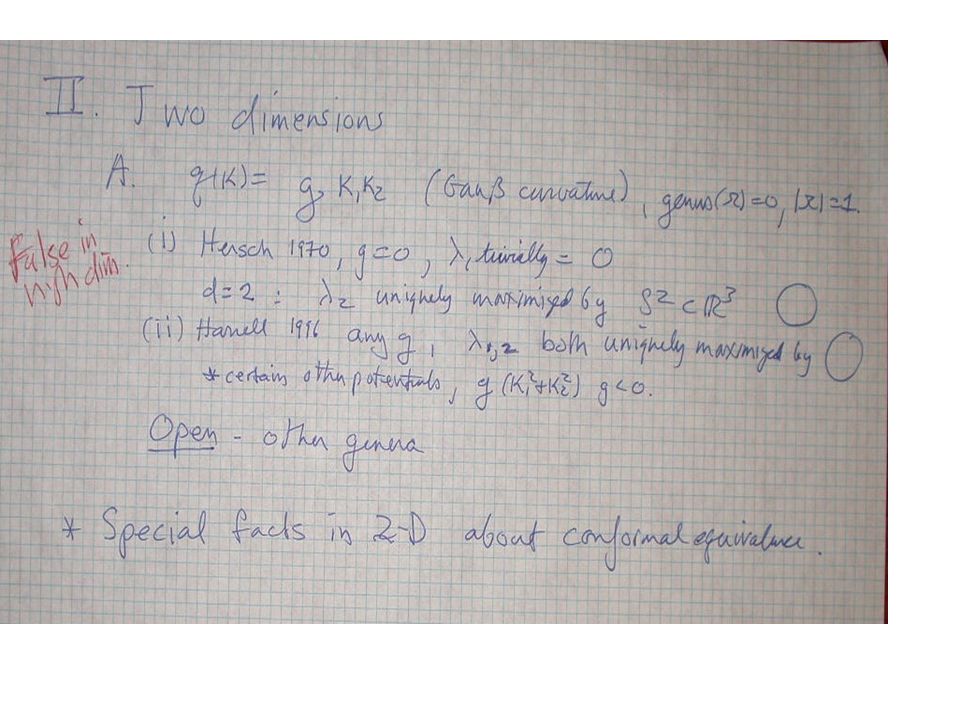 II. Two dimensions
A. q(K)= g K₁K₂ (Gauß curvature), genus(Ω)=0, |Ω|=1.
False in high dim.
(i) Hersch 1970, g=0, λ₁ trivially = 0
d=2 : λ₂ uniquely maximized by S² ⊂ ℝ³
(ii) Harrell 1996 any g, λ₁,₂ both uniquely maximized by
* certain other potentials, g (K₁²+K₂²) g<0.
Open - other genera
* Special facts in 2-D about conformal equivalence.